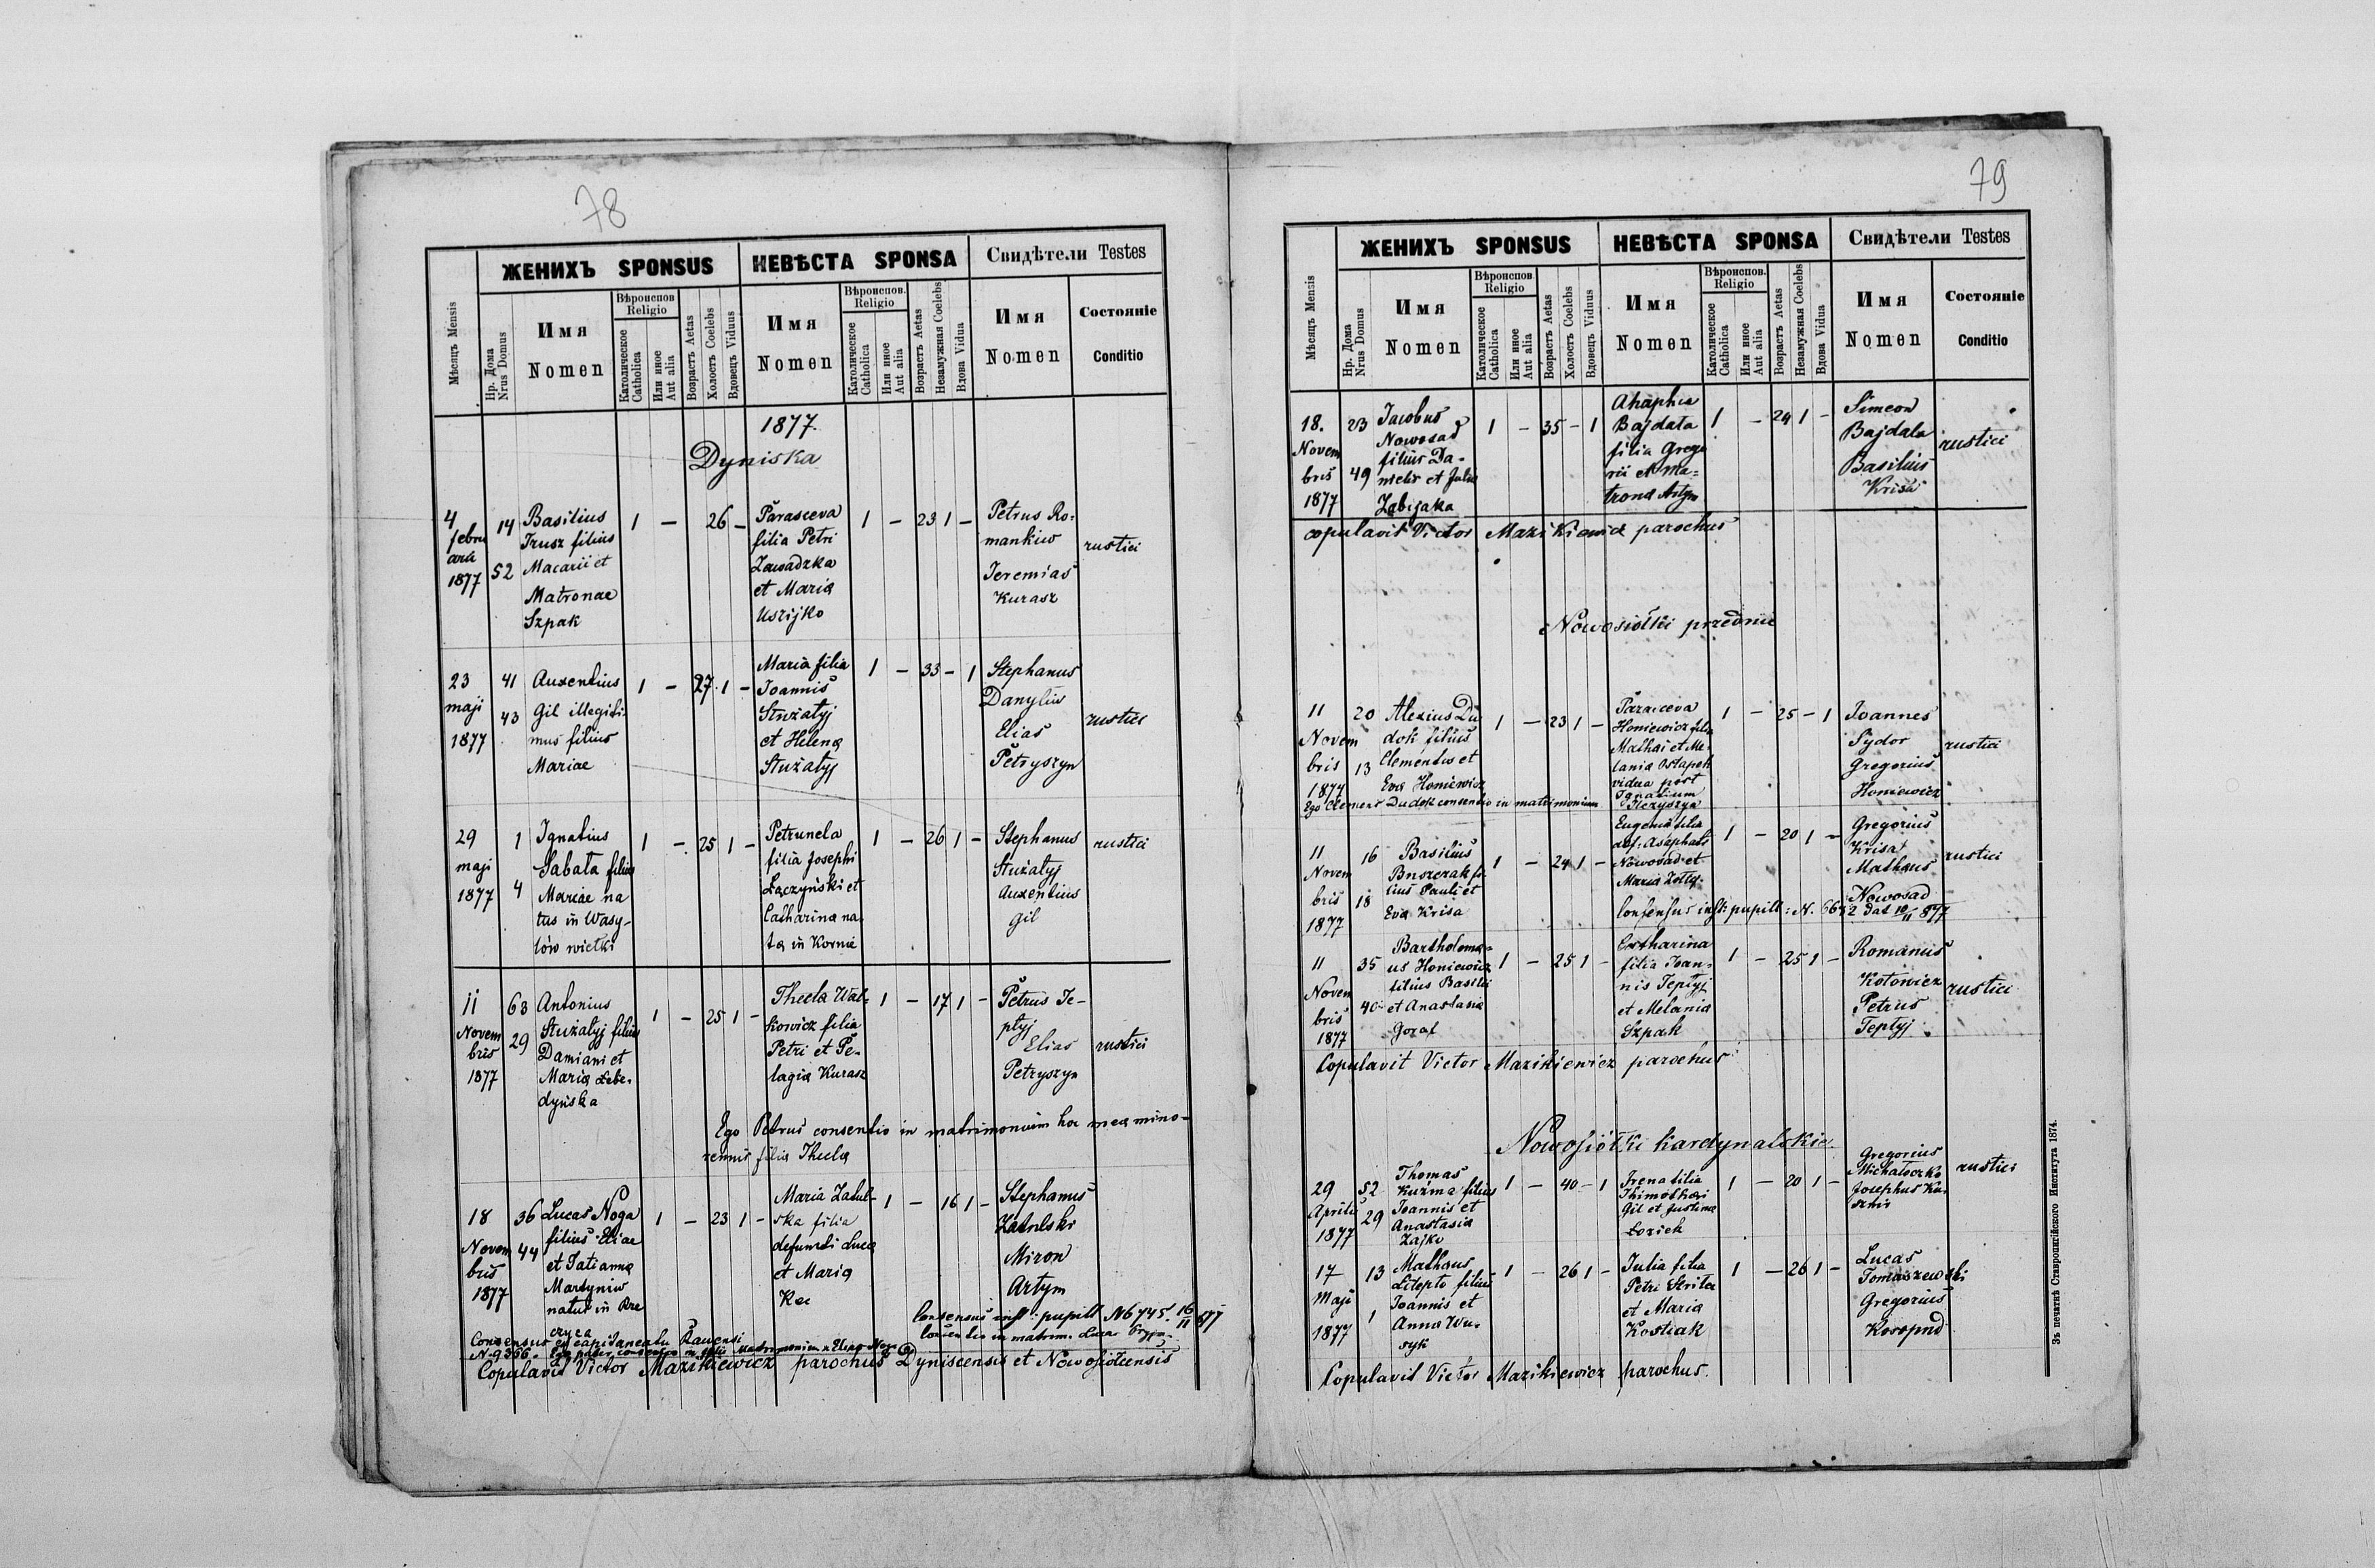 78
Мѣсяцъ Mensis
ЖЕНИХЪ SPONSUS
НЕВѢСТА SPONSA
Свидѣтели Testes
Нр. Дома
Nrus Domus
Имя
Nomen
Вѣроиспов
Religio
Католическое
Catholica
Или иное
Aut alia
Возрастъ Aetas
Холостъ Coelebs
Вдовецъ Viduus
Имя
Nomen
Вѣроиспов.
Religio
Католическое
Catholica
Или иное
Aut alia
Возрастъ Aetas
Незамужная Coelebs
Вдова Vidua
Имя
Nomen
Состояніе
Conditio
1877.
Dyniska
4
febru
arii
1877
14
52
Basilius
Irusz filius
Macarii et
Matronae
Szpak
1 — 26 —
Parasceva
filia Petri
Zawadzka
et Maria
Uszijko
1 — 23 1 —
Petrus Ro-
mankiw
Jeremias
Kurasz
rustici
23
maji
1877
41
43
Auxentius
Gil illegiti-
mus filius
Mariae
1 — 27 1 —
Maria filia
Joannis
Stużatyj
et Helena
Stużatyj
1 — 33 — 1
Stephanus
Danyliw
Elias
Petryszyn
rustici
29
maji
1877
1
4
Ignatius
Sabata filius
Mariae na
tus in Wasy-
lów wielki
1 — 25 1 —
Petrunela
filia Josephi
Łączyński et
Catharina na-
ta in Kornie
1 — 26 1 —
Stephanus
Stużatyj
Auxentius
Gil
rustici
11
Novem
bris
1877
63
29
Antonius
Stużatyj filius
Damiani et
Maria Lebe-
dyńska
1 — 25 1 —
Thecla Wal-
kowicz filia
Petri et Pe-
lagia Kurasz
1 — 17 1 —
Petrus Te-
ptyj
Elias
Petryszyn
rustici
Ego Petrus consentio in matrimonium hoc mea mino-
rennis filia Thecla
18
Novem
bris
1877
36
44
Lucas Noga
filius Eliae
et Tatianna
Martyniw
natus in Rze
czyca
1 — 23 1 —
Maria Zatul-
ska filia
defuncti Luca
et Maria
Kec
1 — 16 1 —
Stephanus
Zatulski
Miron
Artym
Consensus inst: pupill N 6745. 16/11 877
Consensus ex capitaneatu Rauensi
N. 9366.
Copulavit Victor Mazikiewicz parochus Dyniscensis et Nowosiołcensis
79
Мѣсяцъ Mensis
ЖЕНИХЪ SPONSUS
НЕВѢСТА SPONSA
Свидѣтели Testes
Нр. Дома
Nrus Domus
Имя
Nomen
Вѣроиспов.
Religio
Католическое
Catholica
Или иное
Aut alia
Возрастъ Aetas
Холостъ Coelebs
Вдовецъ Viduus
Имя
Nomen
Вѣроиспов.
Religio
Католическое
Catholica
Или иное
Aut alia
Возрастъ Aetas
Незамужная Coelebs
Вдова Vidua
Имя
Nomen
Состояніе
Conditio
18.
Novem
bris
1877
23
49
Jacobus
Nowosad
filius Da-
nielis et Julia
Zabijaka
1 — 35 — 1
Ahaphia
Bajdala
filia Grego
rii et Ma-
trona Artym
1 — 24 1 —
Simeon
Bajdala
Basilius
Krisa
rustici
copulavit Victor Mazikiewicz parochus
Nowosiółki przednie
11
Novem
bris
1877
20
13
Alexius Du
dok filius
Clementis et
Eva Honiewicz
1 — 23 1 —
Parasceva
Honiewicz filia
Mathai et Me-
lania Ostapek
vidua post
Ignatium
Ilczyszyn
1 — 25 — 1
Joannes
Sydor
Gregorius
Honiewicz
rustici
Ego Clemens Dudok consentio in matrimonium
11
Novem
bris
1877
16
18
Basilius
Bnozczak fi-
lius Pauli et
Eva Krisa
1 — 24 1 —
Eugenia filia
def: Asaphati
Nowosad et
Maria Zołty
1 — 20 1 —
Gregorius
Krisa
Mathaus
Nowosad
rustici
Consensus inst: pupill: N. 6652 dat 10/11 877
11
Novem
bris
1877
35
40
Bartholoma-
us Honiewicz
filius Basilii
et Anastasia
Goral
1 — 25 1 —
Catharina
filia Joan-
nis Teptyj
et Melania
Szpak
1 — 25 1 —
Romanus
Kotowicz
Petrus
Teptyj
rustici
Copulavit Victor Mazikiewicz parochus
Nowosiółki kardynalskie
29
Aprilis
1877
52
29
Thomas
Kuzma filius
Joannis et
Anastasia
Zajko
1 — 40 — 1
Irena filia
Thimothaei
Gil et Justina
Łozick
1 — 20 1 —
Gregorius
Michałoczko
Josephus Ku-
szmir
rustici
17
Maji
1877
13
1
Mathaus
Litopto filius
Joannis et
Anna Wu-
syk
1 — 26 1 —
Julia filia
Petri Skrita
et Maria
Kostiak
1 — 26 1 —
Lucas
Tomaszewski
Gregorius
Koropnd
Copulavit Victor Mazikiewicz parochus.
Зъ печатнѣ Ставропигійского Института 1874.